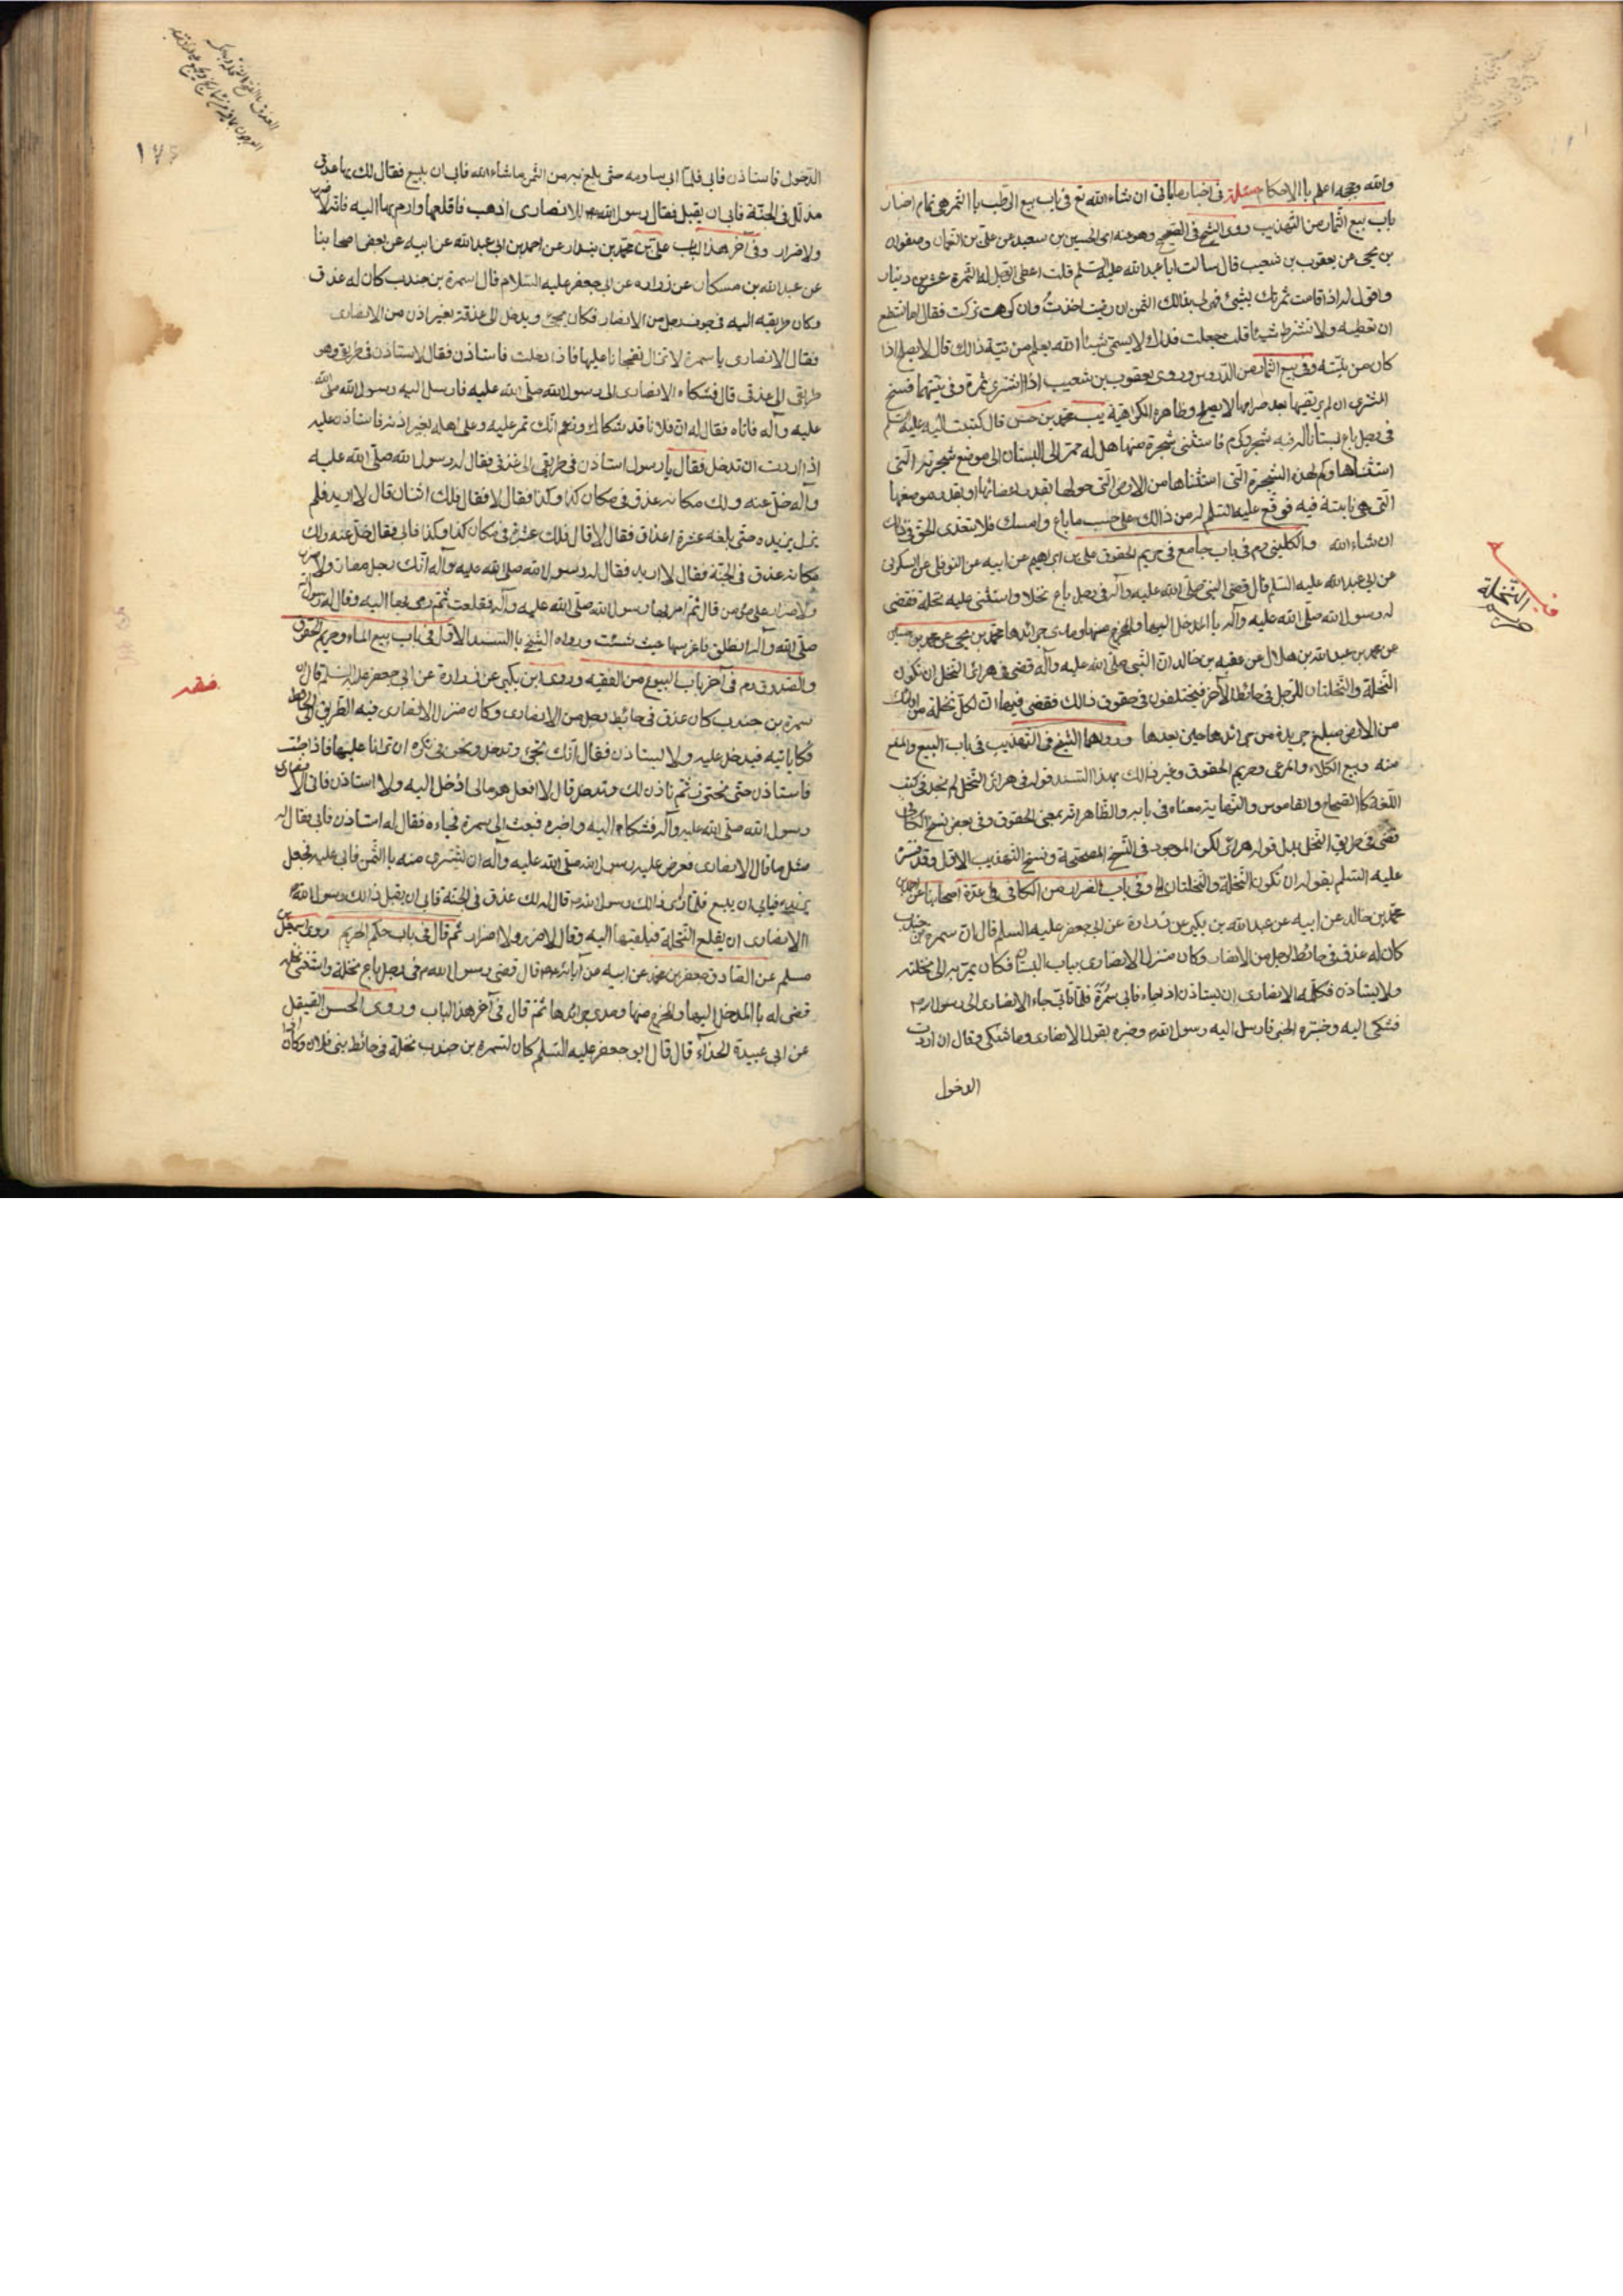 والله وحججه اعلم باالاحكام مسئلة في اخبار ماياتى ان شاء الله تع فى باب بيع الرطب باالتمر هى تمام اخبار
باب بيع الثمار من التهذيب روى الشيخ فى الصحيح وهو منه اى الحسين بن سعيد عن على بن النعمان وصفوان
بن يحيى عن يعقوب بن شعيب قال سالت ابا عبد الله عليه السلم قلت اعطى الرجل له الثمرة عشرين دينار
واقول له اذا قامت ثمرتك بشئ فهى لى بذالك الثمن ان رضيت اخذت وان كرهت تركت فقال اما تستطيع
ان تعطيه ولا تشترط شيئا قلت جعلت فداك لا يسمى شيئا الله يعلم من نيته ذالك قال لا يصلح اذا
كان من نيته وفى بيع الثمار من الدروس وروى يعقوب بن شعيب اذا اشترى ثمرة وفى نيتهما فسخ
المشترى ان لم يربحه بعد الا يصلح وظاهره الكراهية يب محمد بن حسن قال كتبت اليه عليه السلم
فى رجل باع بستانا له فيه شجر وكرم فاستثنى شجرة منها هل له ممر الى البستان الى موضع شجرته التى
استثناها وكم لهذه الشجرة التى استثناها من الارض التى حولها بقدر اغصانها او بقدر موضعها
التى هى نابتة فيه فوقع عليه السلم له من ذالك على حسب ما باع وامسك فلا يتعدى الحق فى ذلك
ان شاء الله والكلينى ره فى باب جامع فى حريم الحقوق على بن ابرهيم عن ابيه عن النوفلى عن السكونى
عن ابى عبد الله عليه السلم قال قضى النبى صلى الله عليه وآله فى رجل باع نخلا واستثنى عليه نخلة فقضى
له رسول الله صلى الله عليه وآله باالمدخل اليها والمخرج منها ومدى جرائدها محمد بن يحيى عن محمد بن حسين
عن محمد بن عبد الله بن هلال عن عقبه بن خالد ان النبى صلى الله عليه وآله قضى فى هرائر النخل ان تكون
النخلة والنخلتان للرجل فى حائط الاخر فيختلفون فى حقوق ذالك فقضى فيها ان لكل نخلة من اولئك
من الارض مبلغ جريدة من جرائدها حين بعدها ورواهما الشيخ فى التهذيب فى باب البيع والمنع
منه وبيع الكلاء والمرعى وحريم الحقوق وغير ذالك بهذا السند قوله فى هرائر النخل لم نجد فى كتب
اللغة كالصحاح والقاموس والنهاية معناه فى بابه والظاهر انه بمعنى الحقوق وفى بعض نسخ الكافى
قضى فى النخل بدل قوله هرائر لكن الموجود فى النسخ المصححة ونسخ التهذيب الاول وقد فسره
عليه السلم بقوله ان تكون النخلة والنخلتان الخ وفى باب الضرار من الكافى فى عدة اصحابنا عن احمد بن
محمد بن خالد عن ابيه عن عبد الله بن بكير عن زرارة عن ابى جعفر عليه السلم قال ان سمرة بن جندب
كان له عذق فى حائط لرجل من الانصار وكان منزل الانصارى بباب البستان فكان يمر به الى نخلته
ولا يستاذن فكلمه الانصارى ان يستاذن اذا جاء فابى سمرة فلما تابى جاء الانصارى الى رسول الله ص
فشكى اليه وخبره الخبر فارسل اليه رسول الله ص وخبره بقول الانصارى وما شكى وقال ان اردت
الدخول
النخلة
الدخول فاستاذن فابى فلما ابى ساومه حتى بلغ به من الثمن ما شاء الله فابى ان يبيع فقال لك بها عذق
مذلل فى الجنة فابى ان يقبل فقال رسول الله ص للانصارى اذهب فاقلعها وارم بها اليه فانه لا ضرر
ولا ضرار وفى آخر هذا الباب على بن محمد بن بندار عن احمد بن ابى عبد الله عن ابيه عن بعض اصحابنا
عن عبد الله بن مسكان عن زراره عن ابى جعفر عليه السلام قال سمرة بن جندب كان له عذق
وكان طريقه اليه فى جوف منزل رجل من الانصار فكان يجئ ويدخل الى عذقه بغير اذن من الانصارى
فقال الانصارى يا سمرة لا تزال تفجانا عليها فاذا دخلت فاستاذن فقال لا استاذن فى طريق وهو
طريقى الى عذقى قال فشكاه الانصارى الى رسول الله صلى الله عليه فارسل اليه رسول الله صلى الله
عليه وآله فاتاه فقال له ان فلانا قد شكاك وزعم انك تمر عليه وعلى اهله بغير اذنه فاستاذن عليه
اذا اردت ان تدخل فقال يا رسول استاذن فى طريقى الى عذقى فقال له رسول الله صلى الله عليه
وآله خل عنه ولك مكانه عذق فى مكان كذا وكذا فقال لا فقال فلك اثنان قال لا اريد فلم
يزل يزيده حتى بلغه عشرة اعذاق فقال لا قال فلك عشرة فى مكان كذا وكذا فابى فقال خل عنه ولك
مكانه عذق فى الجنة فقال لا اريد فقال له رسول الله صلى الله عليه وآله انك رجل مضار ولا ضرر
ولا ضرار على مؤمن قال ثم امر بها رسول الله صلى الله عليه وآله فقلعت ثم رمى بها اليه وقال له رسول الله
صلى الله وآله انطلق فاغرسها حيث شئت ورواه الشيخ باالسند الاول فى باب بيع الماء وحريم الحقوق
والصدوق ره فى آخر باب البيوع من الفقيه وروى ابن بكير عن زرارة عن ابى جعفر عليه السلم قال ان
سمرة بن جندب كان عذق فى حائط رجل من الانصارى وكان منزل الانصارى فيه الطريق الى الحائط
فكان ياتيه فيدخل عليه ولا ليستاذن فقال انك تجئ وتدخل ونحن فى نكره ان ترانا عليها فاذا جئت
فاستاذن حتى نتحنى ثم ناذن لك وتدخل قال لا افعل هو مالى ادخل اليه ولا استاذن فاتى الانصارى
رسول الله صلى الله عليه وآله فشكاه اليه واخبره فبعث الى سمرة فجاءه فقال له استاذن فابى فقال له
مثل ما قال الانصارى فعرض عليه رسول الله صلى الله عليه وآله ان يشترى منه باالثمن فابى عليه وجعل
يزيده فيابى ان يبيع فلما راى ذالك رسول الله ص قال له لك عذق فى الجنة فابى ان يقبل ذالك رسول الله
الانصارى ان يقلع النخلة فيلقيها اليه وقال لا ضرر ولا اضرار ثم قال فى باب حكم الحريم روى اسمعيل بن
مسلم عن الصادق جعفر بن محمد عن ابيه عن آبائه قال قضى رسول الله ص فى رجل باع نخلة واستثنى نخلة
قضى له باالمدخل اليها والمخرج منها ومدى جرائدها ثم قال فى آخر هذا الباب وروى الحسن الصيقل
عن ابى عبيدة الحذاء قال قال ابو جعفر عليه السلم كان لسمرة بن جندب نخلة فى حائط بنى فلان وكان